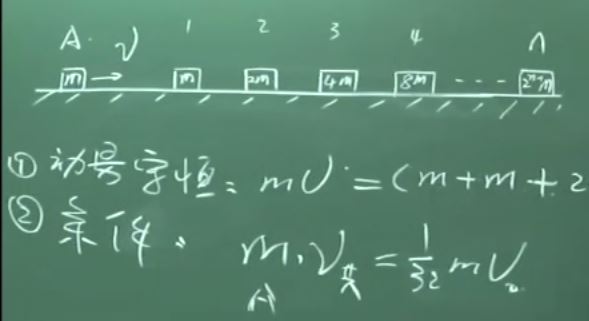 A. v 1 2 3 4 n
m → m 2m 4m 8m --- 2ⁿ⁻¹m
① 动量守恒: mv = (m+m+2
② 条件: m·v共 = 1/32 mv₀
A